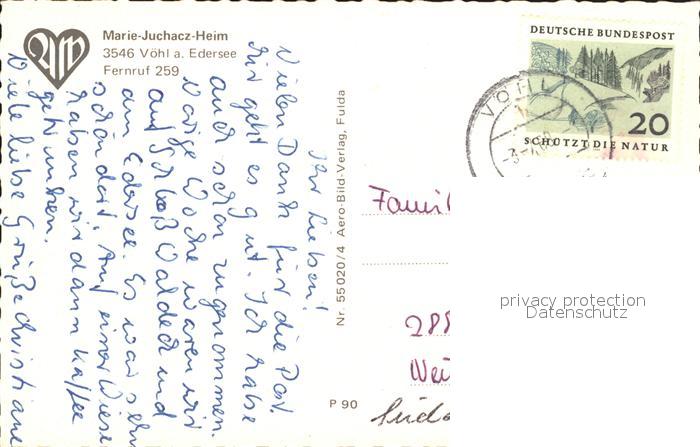 Marie-Juchacz-Heim
3546 Vöhl a. Edersee
Fernruf 259
DEUTSCHE BUNDESPOST
20
SCHÜTZT DIE NATUR
VÖHL
Ihr Lieben!
Vielen Dank für die Post.
Mir geht es gut. Ich habe
auch schon zugenommen.
Vorige Woche waren wir
auf Schloß Waldeck und
am Edersee. Es war sehr
schön dort. Auf einer Wiese
haben wir dann Kaffee
getrunken.
Viele liebe Grüße Christiane
Nr. 55020/4 Aero-Bild-Verlag, Fulda
P 90
Famil
288
Wei
Süd
privacy protection
Datenschutz